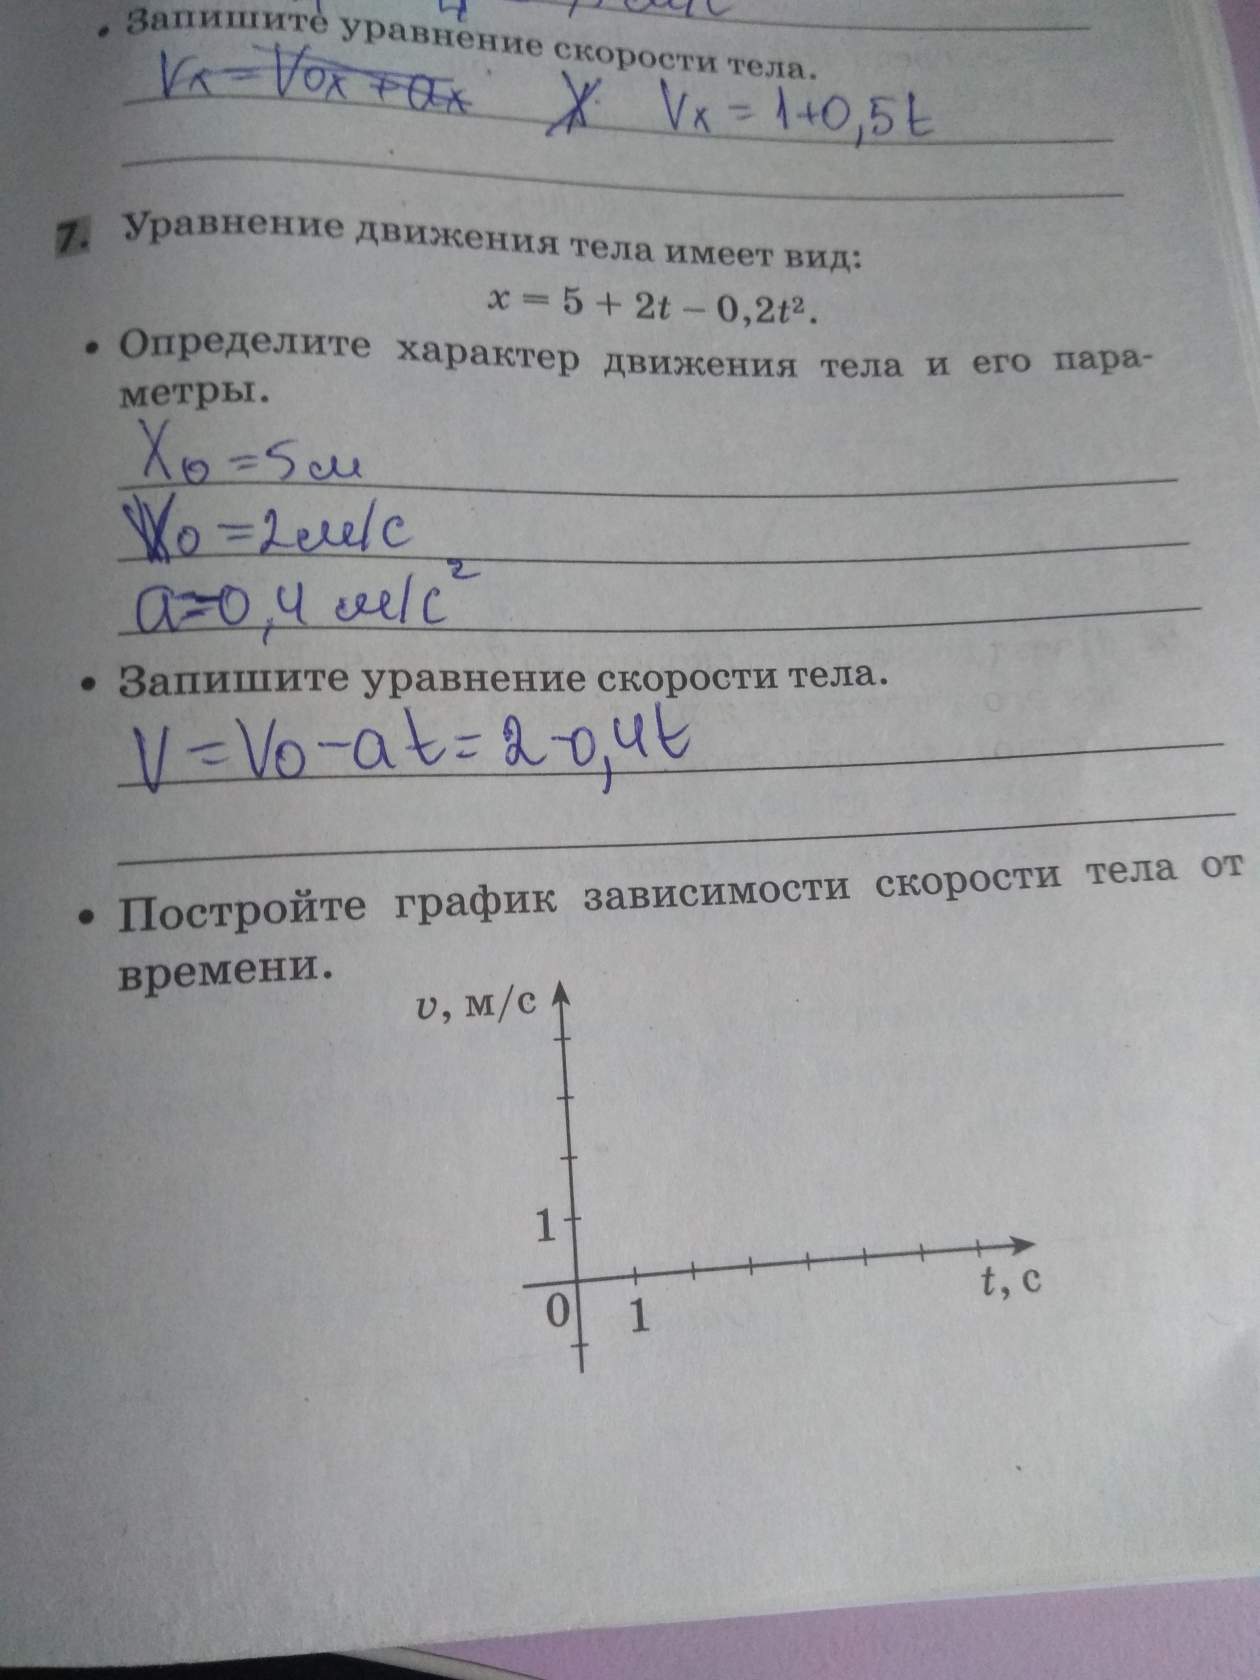 • Запишите уравнение скорости тела.
Vx = V0x + ax Vx = 1+0,5t
7. Уравнение движения тела имеет вид:
x = 5 + 2t – 0,2t².
• Определите характер движения тела и его пара-
метры.
X0 = 5м
V0 = 2м/с
a = 0,4 м/с²
• Запишите уравнение скорости тела.
V = V0 - at = 2-0,4t
• Постройте график зависимости скорости тела от
времени.
v, м/с
1
0 1 t, с